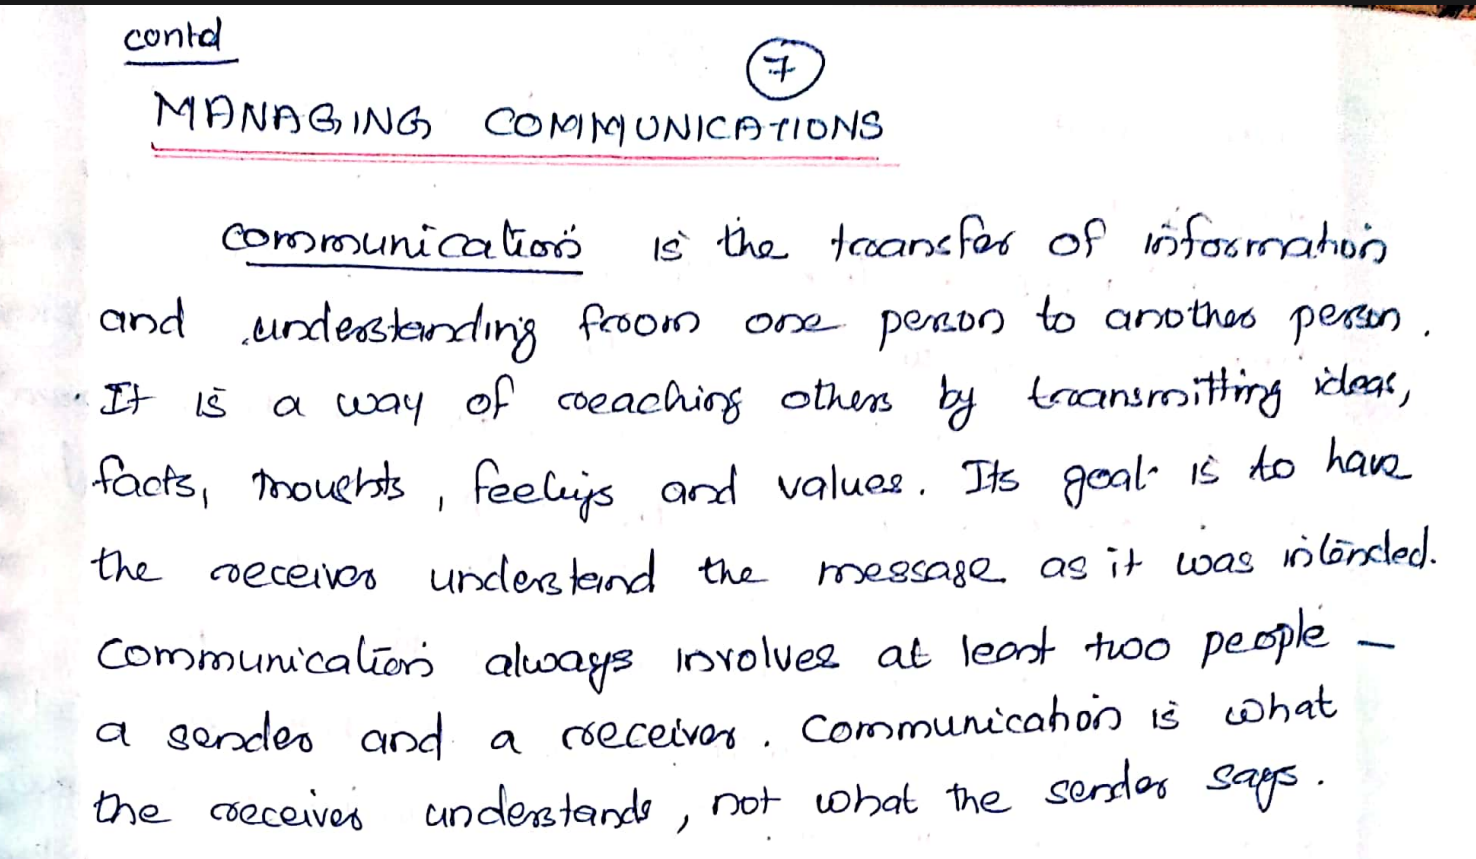 contd
7
MANAGING COMMUNICATIONS
Communication is the transfer of information
and understanding from one person to another person.
It is a way of reaching others by transmitting ideas,
facts, thoughts, feelings and values. Its goal is to have
the receiver understand the message as it was intended.
Communication always involves at least two people –
a sender and a receiver. Communication is what
the receiver understands, not what the sender says.